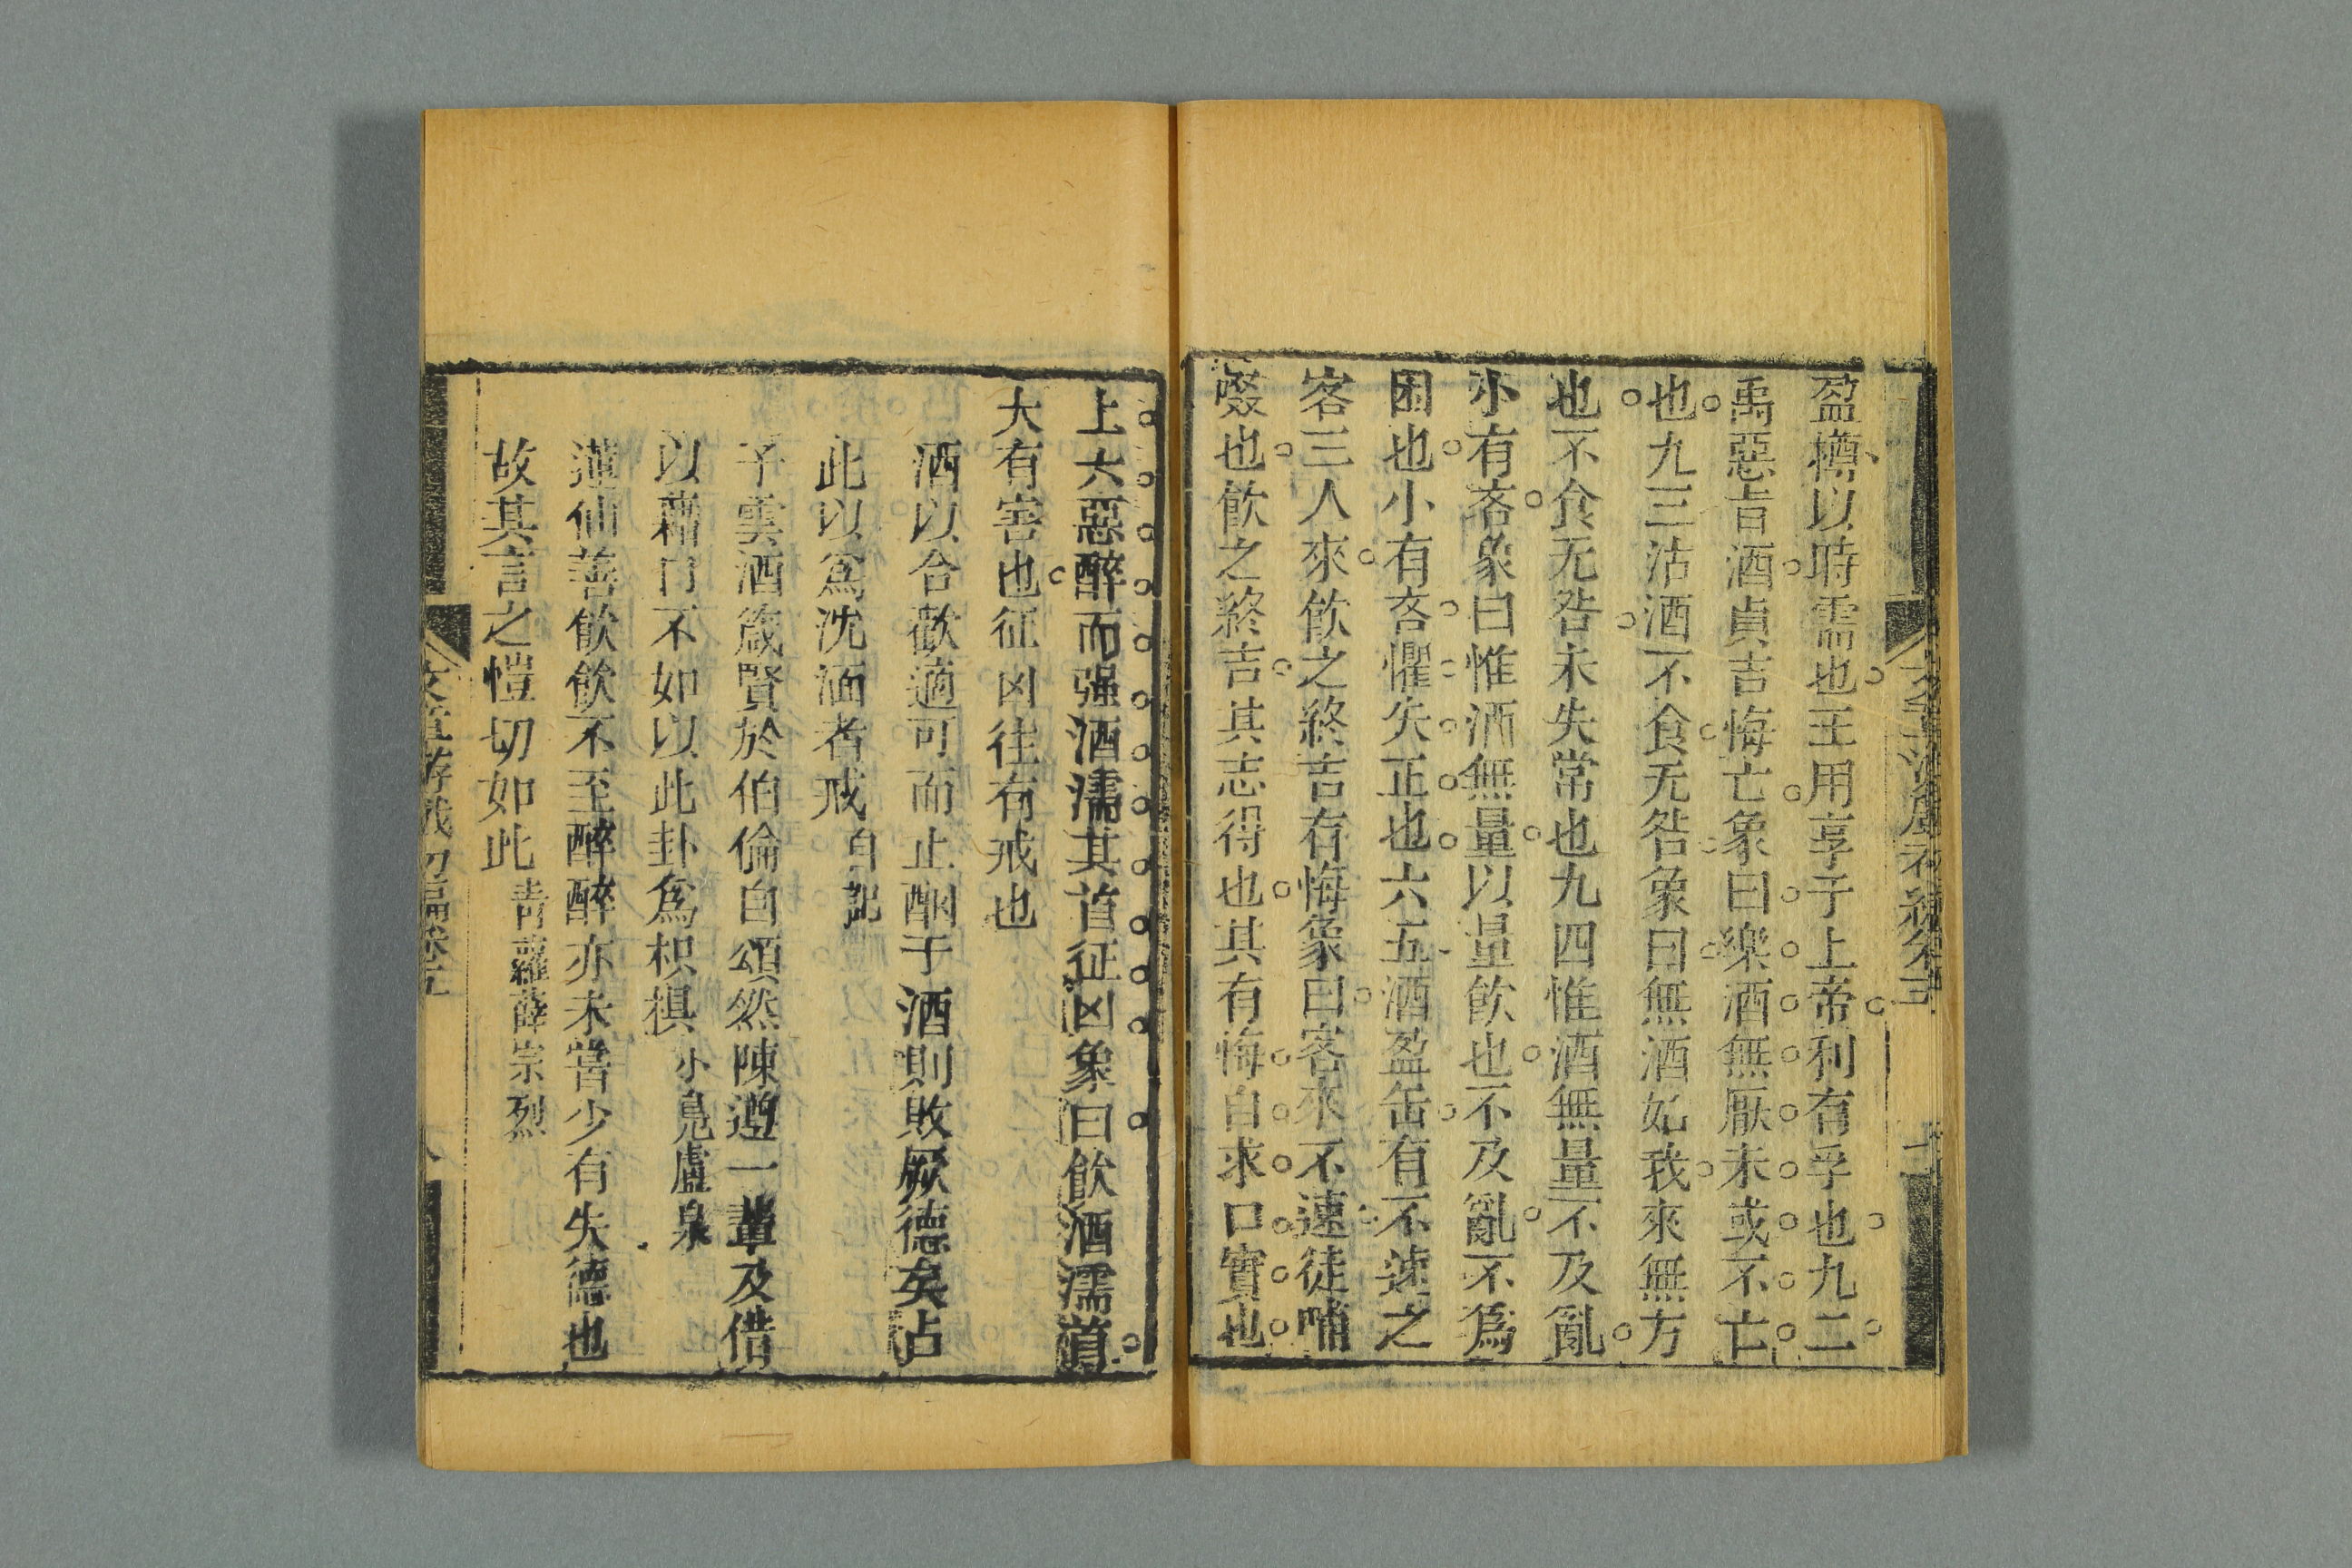 盈樽以時需也王用享于上帝利有孚也九二
禹惡旨酒貞吉悔亡象曰樂酒無厭未或不亡
也九三沽酒不食无咎象曰無酒如我來無方
也不食无咎未失常也九四惟酒無量不及亂
小有吝象曰惟酒無量以量飲也不及亂不爲
困也小有吝懼失正也六五酒盈缶有不速之
客三人來飲之終吉有悔象曰客來不速徒哺
啜也飲之終吉其志得也其有悔自求口實也
上六惡醉而强酒濡其首征凶象曰飲酒濡首
大有害也征凶往有戒也
酒以合歡適可而止酗于酒則敗厥德矣占
此以爲沈湎者戒 自記
子雲酒箴賢於伯倫自頌然陳遵一輩及借
以藉口不如以此卦爲枳椇 小鳧盧泉
蓮仙善飲飲不至醉醉亦未嘗少有失德也
故其言之愷切如此 青蘿薛宗烈
文章游戲初編卷五
八